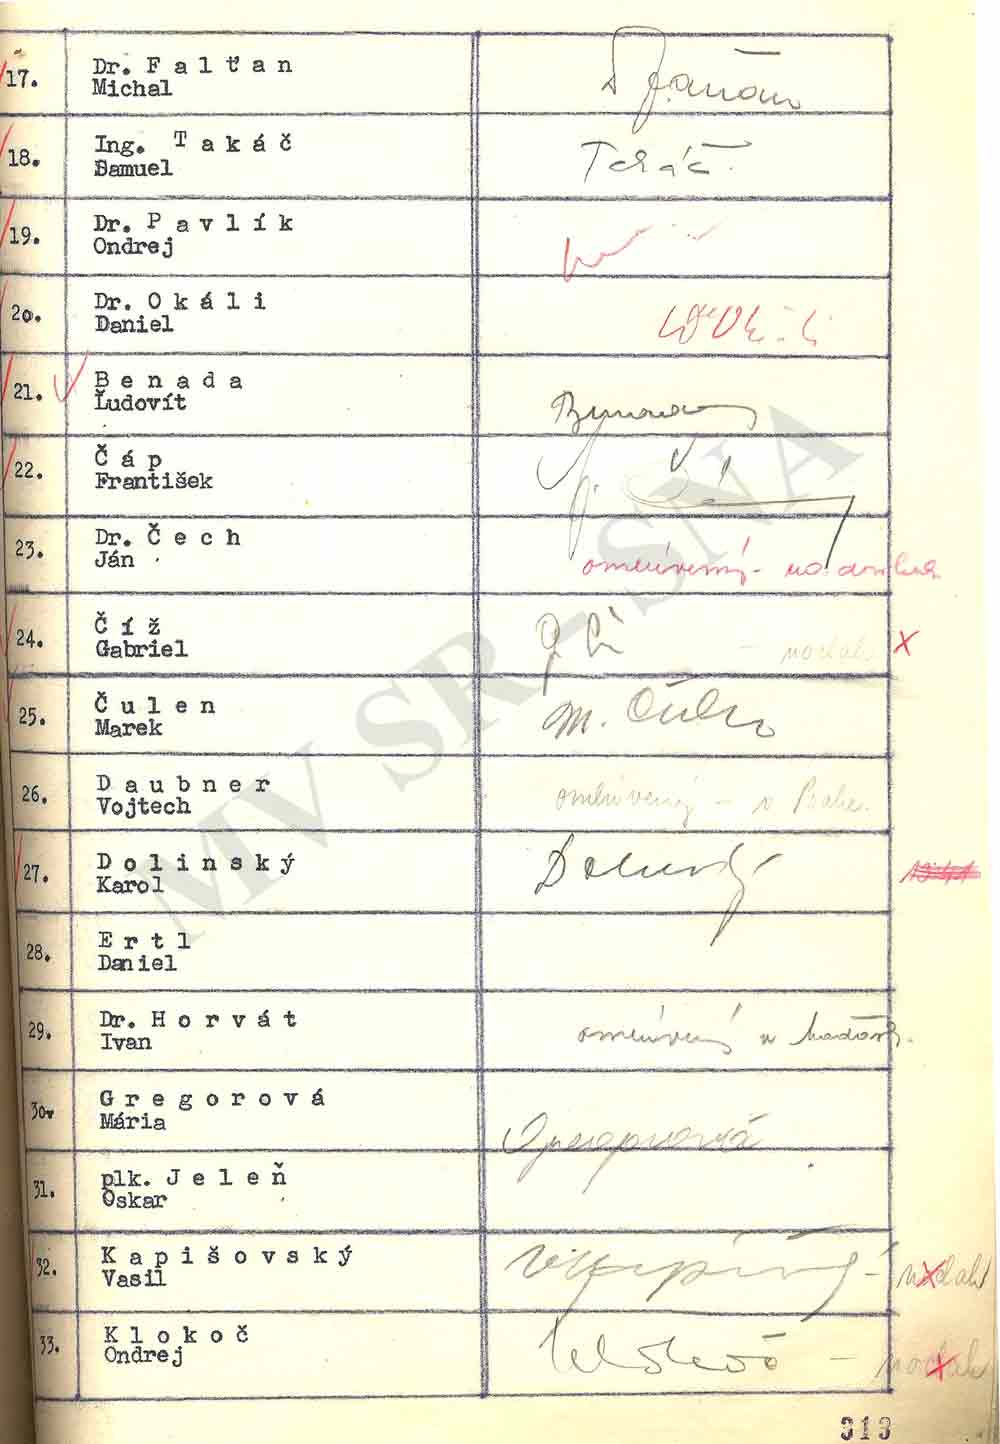 17. Dr. Falťan
Michal
18. Ing. Takáč
Samuel
Takáč
19. Dr. Pavlík
Ondrej
20. Dr. Okáli
Daniel
21. Benada
Ľudovít
22. Čáp
František
23. Dr. Čech
Ján
omluvený -
24. Číž
Gabriel
x
25. Čulen
Marek
M. Čulen
26. Daubner
Vojtech
omluvený - v Prahe.
27. Dolinský
Karol
Dolinský
28. Ertl
Daniel
29. Dr. Horvát
Ivan
omluvený v
30. Gregorová
Mária
Gregorová
31. plk. Jeleň
Oskar
32. Kapišovský
Vasil
33. Klokoč
Ondrej
Klokoč
MV SR - SNA
313